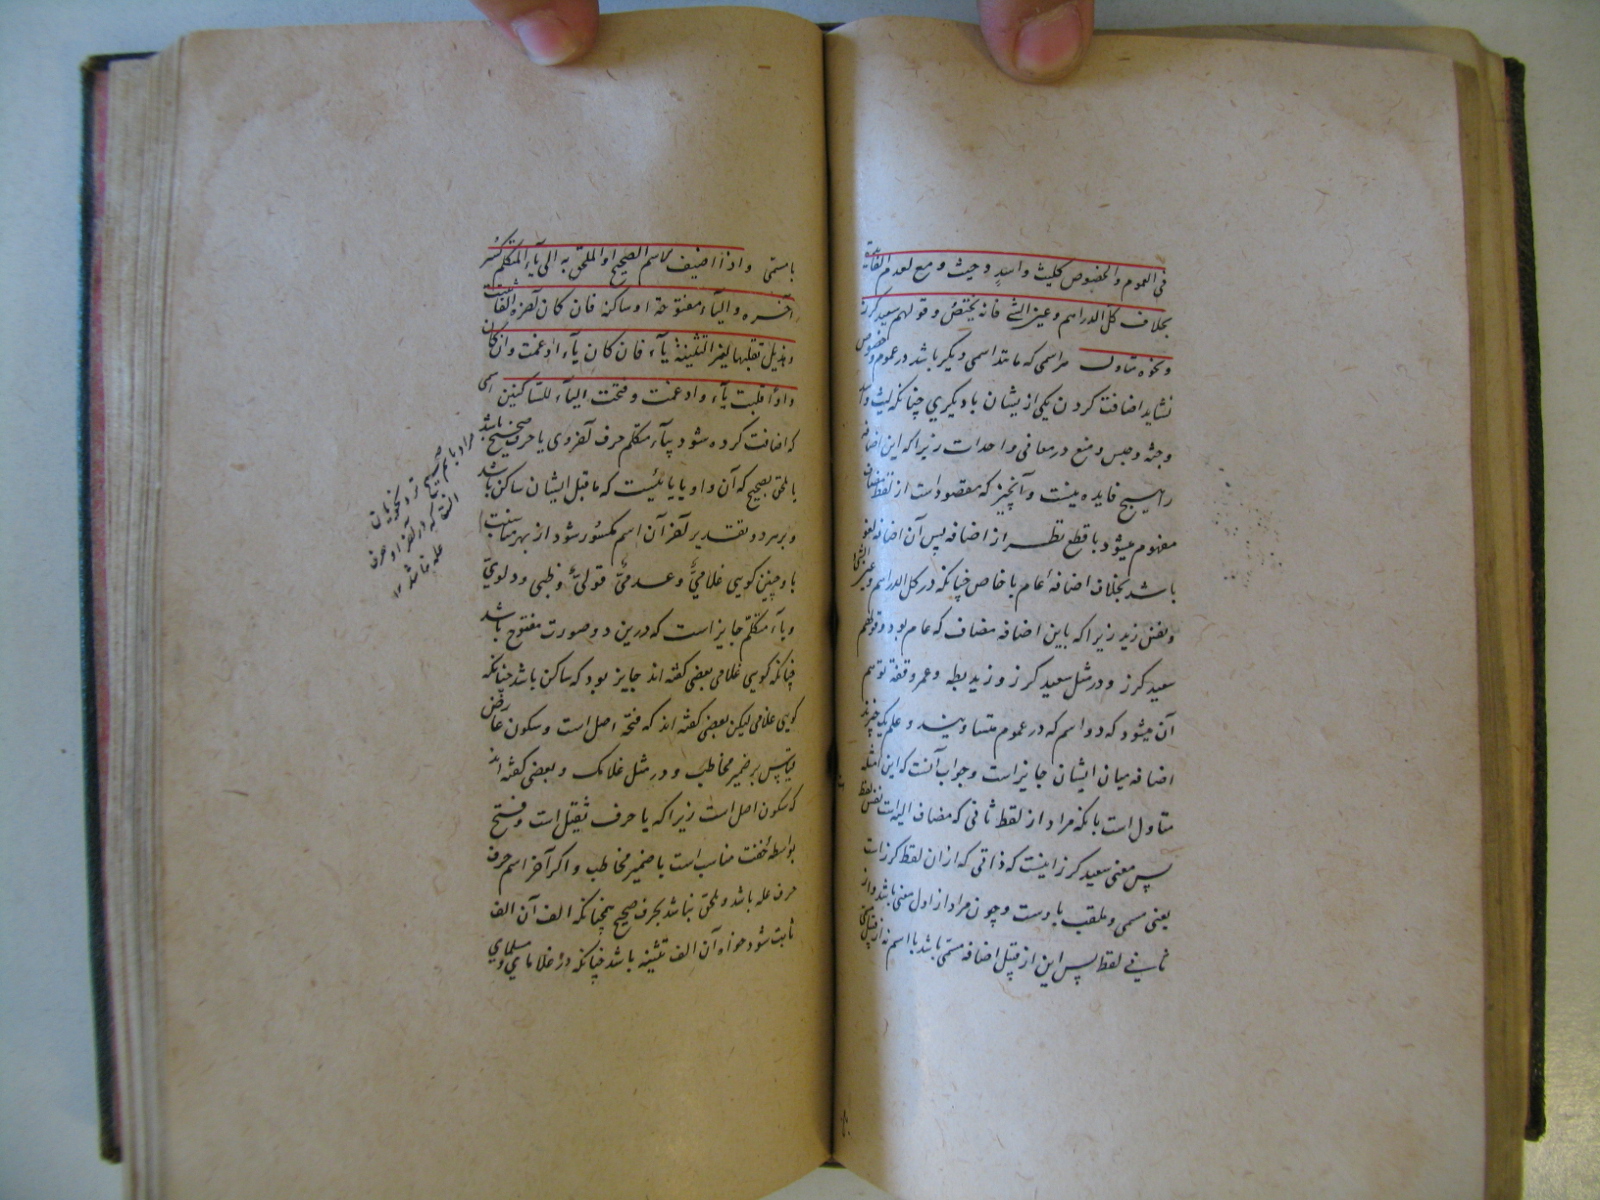 فی العموم و الخصوص کلیث و اسدٍ و حبث و منع لعدم الفایدة
بخلاف کل الدراهم و عین الشئ فانه یختصّ و قولهم سعید کرز
و نحوه متاول هر اسمی که مانند اسمی دیگر باشد در عموم و خصوص
نشاید اضافت کردن یکی از یشان با دیگری چنانکه لیث و اسد
و جثه و حبس و منع در معانی و احداث زیرا که این اضافه
را هیچ فایده نیست و آنچیز که مقصود است از لفظ مضاف
مفهوم میشود با قطع نظر از اضافه پس آن اضافه لغو
باشد بخلاف اضافهٔ عام با خاص چنانکه در کل الدراهم و عین الشئ
و نفس زید زیرا که باین اضافه مضاف که عام بود و قولهم
سعید کرز و در مثل سعید کرز و زید بطه و عمرو قفه توهم
آن میشود که دو اسم که در عموم متساویند و علم یک چیزند
اضافه میان ایشان جایز است و جواب آنست که این امثله
متاول است بانکه مراد از لفظ ثانی که مضاف الیه است نفس لفظ
پس معنی سعید کرز اینست که ذاتی که از ان لفظ کرز است
یعنی مسمی و ملقب باوست و چون مراد از اول معنی باشد و از
ثانی لفظ پس این از قبیل اضافه مسمّی باشد با اسم نه از قبیل
بامسمّی و اذا اضیف الاسم الصحیح او الملحق به الی یآء المتکلم کُسِر
آخره و الیآء مفتوحة او ساکنة فان کان آخره الفا تثبت
و هذیل تقلبها لغیر التثنیة یآء فان کان یآء ادغمت و ان کان
واوا قلبت یآء و ادغمت و فتحت الیآء للساکنین اسمی
که اضافت کرده شود بیآء متکلم حرف آخر وی یا حرف صحیح باشد
یا ملحق بصحیح که آن واو یا یائیست که ماقبل ایشان ساکن باشد
و بر هر دو تقدیر آخر آن اسم مکسُور شود از بهر مناسبت
یا و چنین کویی غلامیْ و ظبی و دلویّ
و یاء متکلّم جایز است که درین دو صورت مفتوح باشد
چنانکه کویی غلامی بعضی کفته اند جایز بود که ساکن باشد چنانکه
کویی غلامی لیکن بعضی کفته اند که فتحه اصل است و سکون عارض
قیاس بر ضمیر مخاطب و در مثل غلامک و بعضی کفته اند
که سکون اصل است زیرا که یا حرف ثقیل است و فتح
بواسطه خفت مناسب است با ضمیر مخاطب و اکر آخر اسم حرف
حرف عله باشد و ملحق نباشد بحرف صحیح همچنانکه الف آن الف
ثابت شود خواه آن الف تثنیه باشد چنانکه در غلامای و مسلمای
مراد باسم صحیح نزد نحویان
آنست که در آخر او حرف
عله نباشد ۱۲